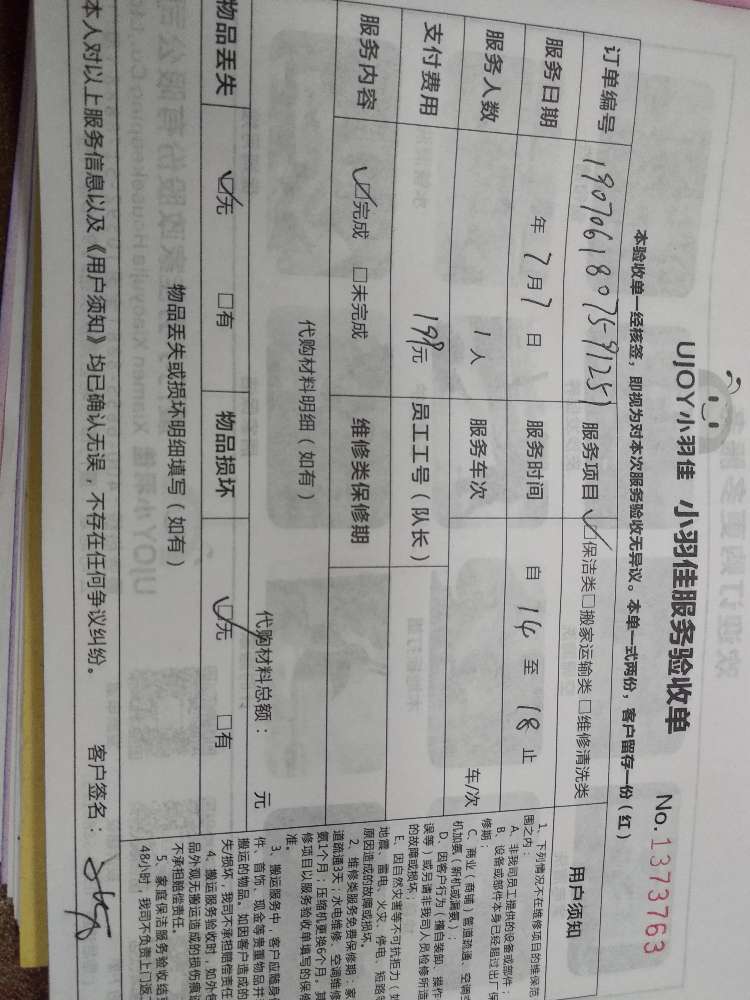 UJOY小羽佳 小羽佳服务验收单
No. 1373763
本验收单一经核签，即视为对本次服务验收无异议。本单一式两份，客户留存一份（红）
订单编号 190706180759125 服务项目 ☑保洁类□搬家运输类□维修清洗类
服务日期 年 7月7日 服务时间 自 14 至 18 止
服务人数 1人 服务车次 车/次
支付费用 198元 员工工号（队长）
服务内容 ☑完成 □未完成 维修类保修期
代购材料明细（如有）
代购材料总额： 元
物品丢失 ☑无 □有 物品损坏 ☑无 □有
物品丢失或损坏明细填写（如有）
本人对以上服务信息以及《用户须知》均已确认无误，不存在任何争议纠纷。 客户签名：
用户须知
1、下列情况不在维修项目的维保范
围之内：
A、非我司员工提供的设备或部件；
B、设备或部件本身已经超过出厂保
修期；
C、商业（商铺）管道疏通、空调
机加氨（新机或漏氨）；
D、因客户行为（擅自装卸、操作
误等）或另请非我司人员检修所造
的故障或损坏；
E、因自然灾害等不可抗拒力（如
地震、雷电、火灾、停电、短路
原因造成的故障或损坏。
2、维修类服务免费保修期：家
道疏通3天；水电维修、空调维修
氨1个月；压缩机更换6个月。其
修项目以服务验收单填写的保修
准。
3、搬运服务中，客户应随身
件、首饰、现金等贵重物品并
搬运的物品。如因客户造成的
失损坏，我司不承担赔偿责任
4、搬运服务验收时，如外包
品外观无搬运造成的损伤痕迹
不承担赔偿责任。
5、家庭保洁服务验收结
48小时，我司不负责上门返工